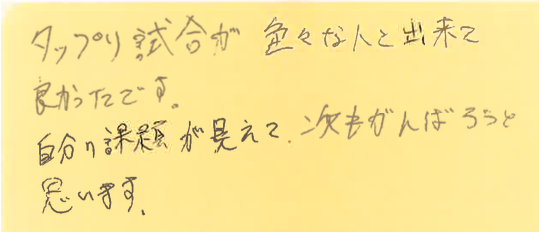 タップリ試合が 色々な人と出来て
良かったです。
自分の課題が見えて、次もがんばろうと
思います。